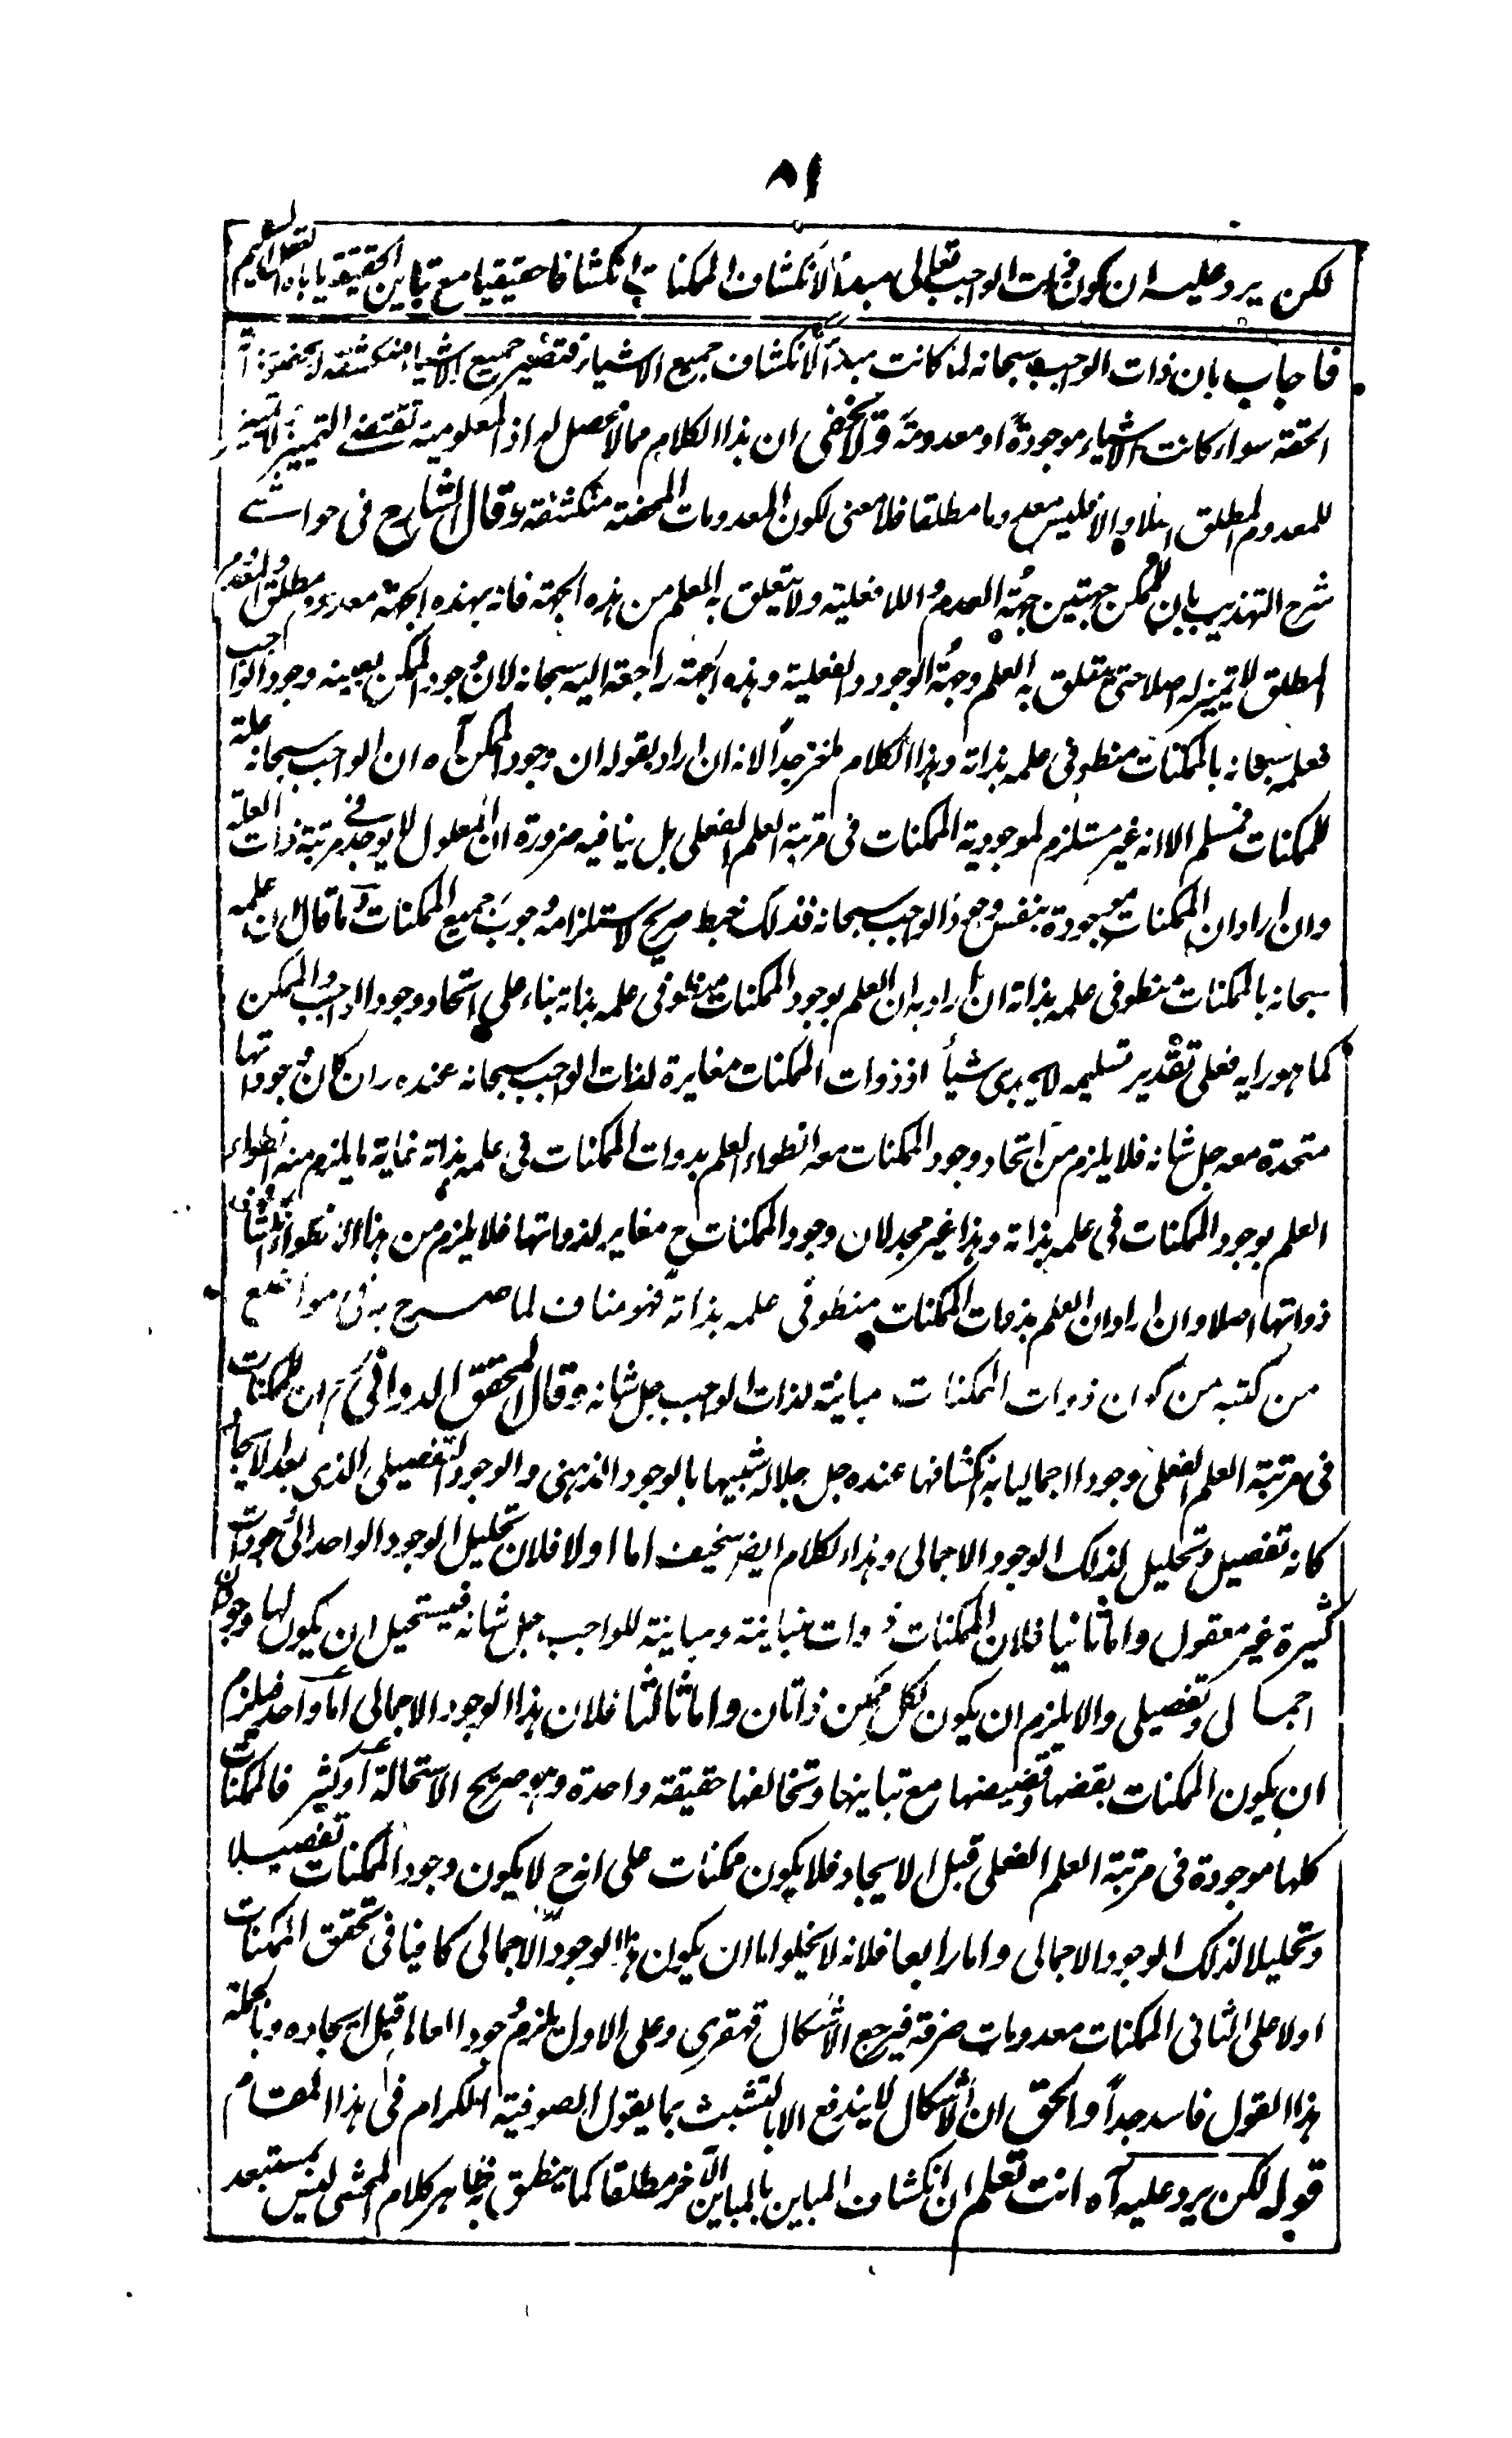 ٨١
لكن يرد عليه ان كون ذات الواجب تعالى مبدأ لانكشاف الممكنات انكشافا حقيقيا مع تباين الحقيقة ياباه العقل السليم
فاجاب بان ذات الواجب سبحانه لما كانت مبدأ لانكشاف جميع الاشياء فتصير جميع الاشياء منكشفة
الحقة سواء كانت الاشياء موجودة او معدومة ولا يخفى ان هذا الكلام مما لا محصل له اذ المعلومية تقتضي التميز ولا تميز
للمعدوم المطلق اصلا والا فليس معدوما مطلقا فلا معنى لكون المعدومات المحضة منكشفة وقال الشارح في حواشي
شرح التهذيب بان للممكن جهتين جهة العدم واللا فعلية ولا يتعلق به العلم من هذه الجهة فانه بهذه الجهة معدوم مطلق والمعدوم
المطلق لا تميز له اصلا حتى يتعلق به العلم وجهة الوجود والفعلية وهذه الجهة راجعة اليه سبحانه لان وجود الممكن بعينه وجود الواجب
فعلمه سبحانه بالممكنات منطو في علمه بذاته وهذا الكلام ملغز جدا لانه ان اراد بقوله ان وجود الممكن آه ان الواجب سبحانه علة
للممكنات فمسلم الا انه غير مستلزم لموجودية الممكنات في مرتبة العلم الفعلي بل ينافيه ضرورة ان المعلول لا يوجد في مرتبة ذات العلة
وان اراد ان الممكنات موجودة بنفس وجود الواجب سبحانه فذلك خبط صريح لاستلزامه وجوب جميع الممكنات وما قال ان علمه
سبحانه بالممكنات منطو في علمه بذاته ان اراد به ان العلم بوجود الممكنات منطو في علمه بذاته بناء على اتحاد وجود الواجب والممكن
كما هو رايه فعلى تقدير تسليمه لا يجدى شيأ اذ ذوات الممكنات مغايرة لذات الواجب سبحانه عنده وان كان وجوداتها
متحدة معه جل شانه فلا يلزم من اتحاد وجود الممكنات معه انطواء العلم بذوات الممكنات في علمه بذاته غاية ما يلزم منه انطواء
العلم بوجود الممكنات في علمه بذاته وهذا غير مجد لان وجود الممكنات ح مغاير لذواتها فلا يلزم من هذا الانطواء انكشاف
ذواتها اصلا وان اراد ان العلم بذوات الممكنات منطو في علمه بذاته فهو مناف لما صرح به في مواضع
من كتبه من كون ذوات الممكنات مباينة لذات الواجب جل شانه وقال المحقق الدواني ان للممكنات
في مرتبة العلم الفعلي وجودا اجماليا به انكشافها عنده جل جلاله شبيها بالوجود الذهني والوجود التفصيلي الذي بعد الايجاد
كانه تفصيل وتحليل لذلك الوجود الاجمالي وهذا الكلام ايضا سخيف اما اولا فلان تحليل الوجود الواحد الى وجودات
كثيرة غير معقول واما ثانيا فلان الممكنات ذوات متباينة ومباينة للواجب جل شانه فيستحيل ان يكون لها وجودان
اجمالى وتفصيلى والا يلزم ان يكون لكل ممكن ذاتان واما ثالثا فلان هذا الوجود الاجمالي اما واحد فيلزم
ان يكون الممكنات بقضها وقضيضها مع تباينها وتخالفها حقيقة واحدة وهو صريح الاستحالة او كثير فالممكنات
كلها موجودة في مرتبة العلم الفعلي قبل الايجاد فلا يكون ممكنات على انه ح لا يكون وجود الممكنات تفصيلا
وتحليلا لذلك الوجود الاجمالي واما رابعا فلانه لا يخلو اما ان يكون هذا الوجود الاجمالي كافيا في تحقق الممكنات
اولا على الثاني الممكنات معدومات صرفة فيرجع الاشكال قهقرى وعلى الاول يلزم وجود العالم قبل ايجاده وبالجملة
هذا القول فاسد جدا والحق ان الاشكال لا يندفع الا بالتشبث بما يقول الصوفية الكرام في هذا المقام
قوله لكن يرد عليه آه انت تعلم ان انكشاف المباين بالمباين الآخر مطلقا كما ينطق به ظاهر كلام المحشي ليس بمستبعد